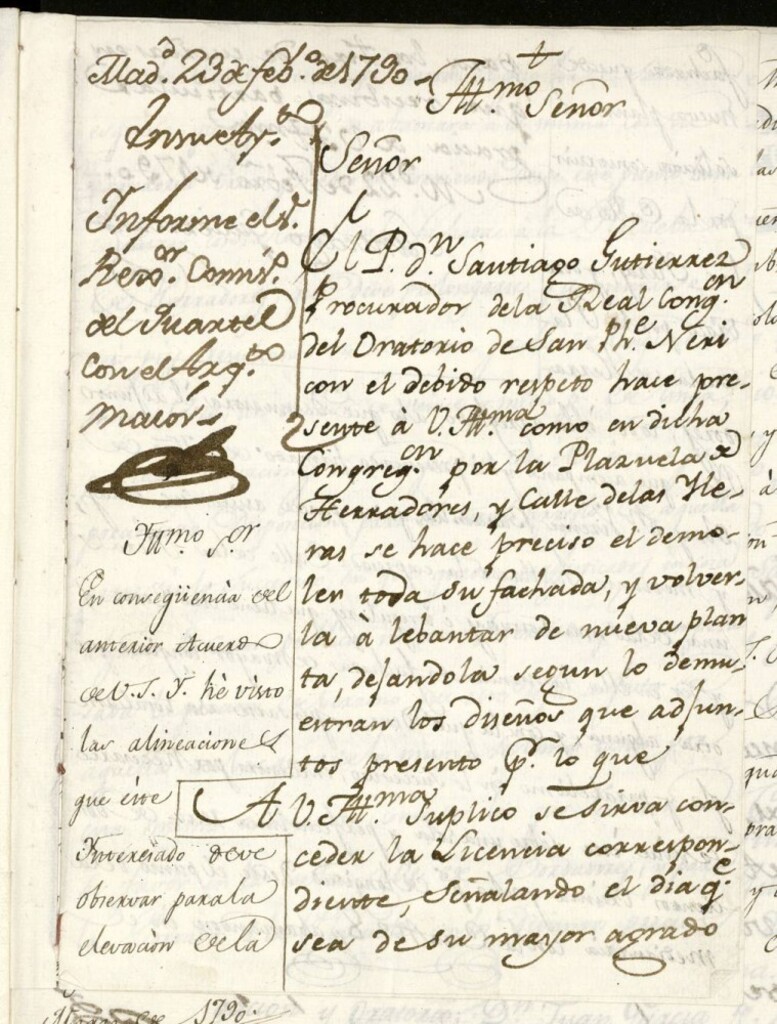 Mad.d 23 de feb.o de 1790
En su Ay.to
Informe el S.r
Rex.or Comis.o
del Quartel
con el Arq.to
maior
Yll.mo S.or
En conseqüencia del
anterior Acuerdo
de V. S. Y. hè visto
las alineaciones
que este
Interesado deve
observar para la
elevacion de la
Yll.mo Señor
Señor
El P. d.n Santiago Gutierrez
Procurador de la Real Cong.on
del Oratorio de San Ph.e Neri
con el debido respeto hace pre-
sente à V. Yll.ma como en dicha
Congreg.on por la Plazuela de
Herradores, y Calle de las He-
ras se hace preciso el demo-
ler toda su fachada, y volver-
la à lebantar de nueva plan
ta, dejandola segun lo demu-
estran los diseños que adjun-
tos presento, p.r lo que
A V. Yll.ma Suplico se sirva con-
ceder la Licencia correspon-
diente, Señalando el dia q.e
sea de su mayor agrado
1790